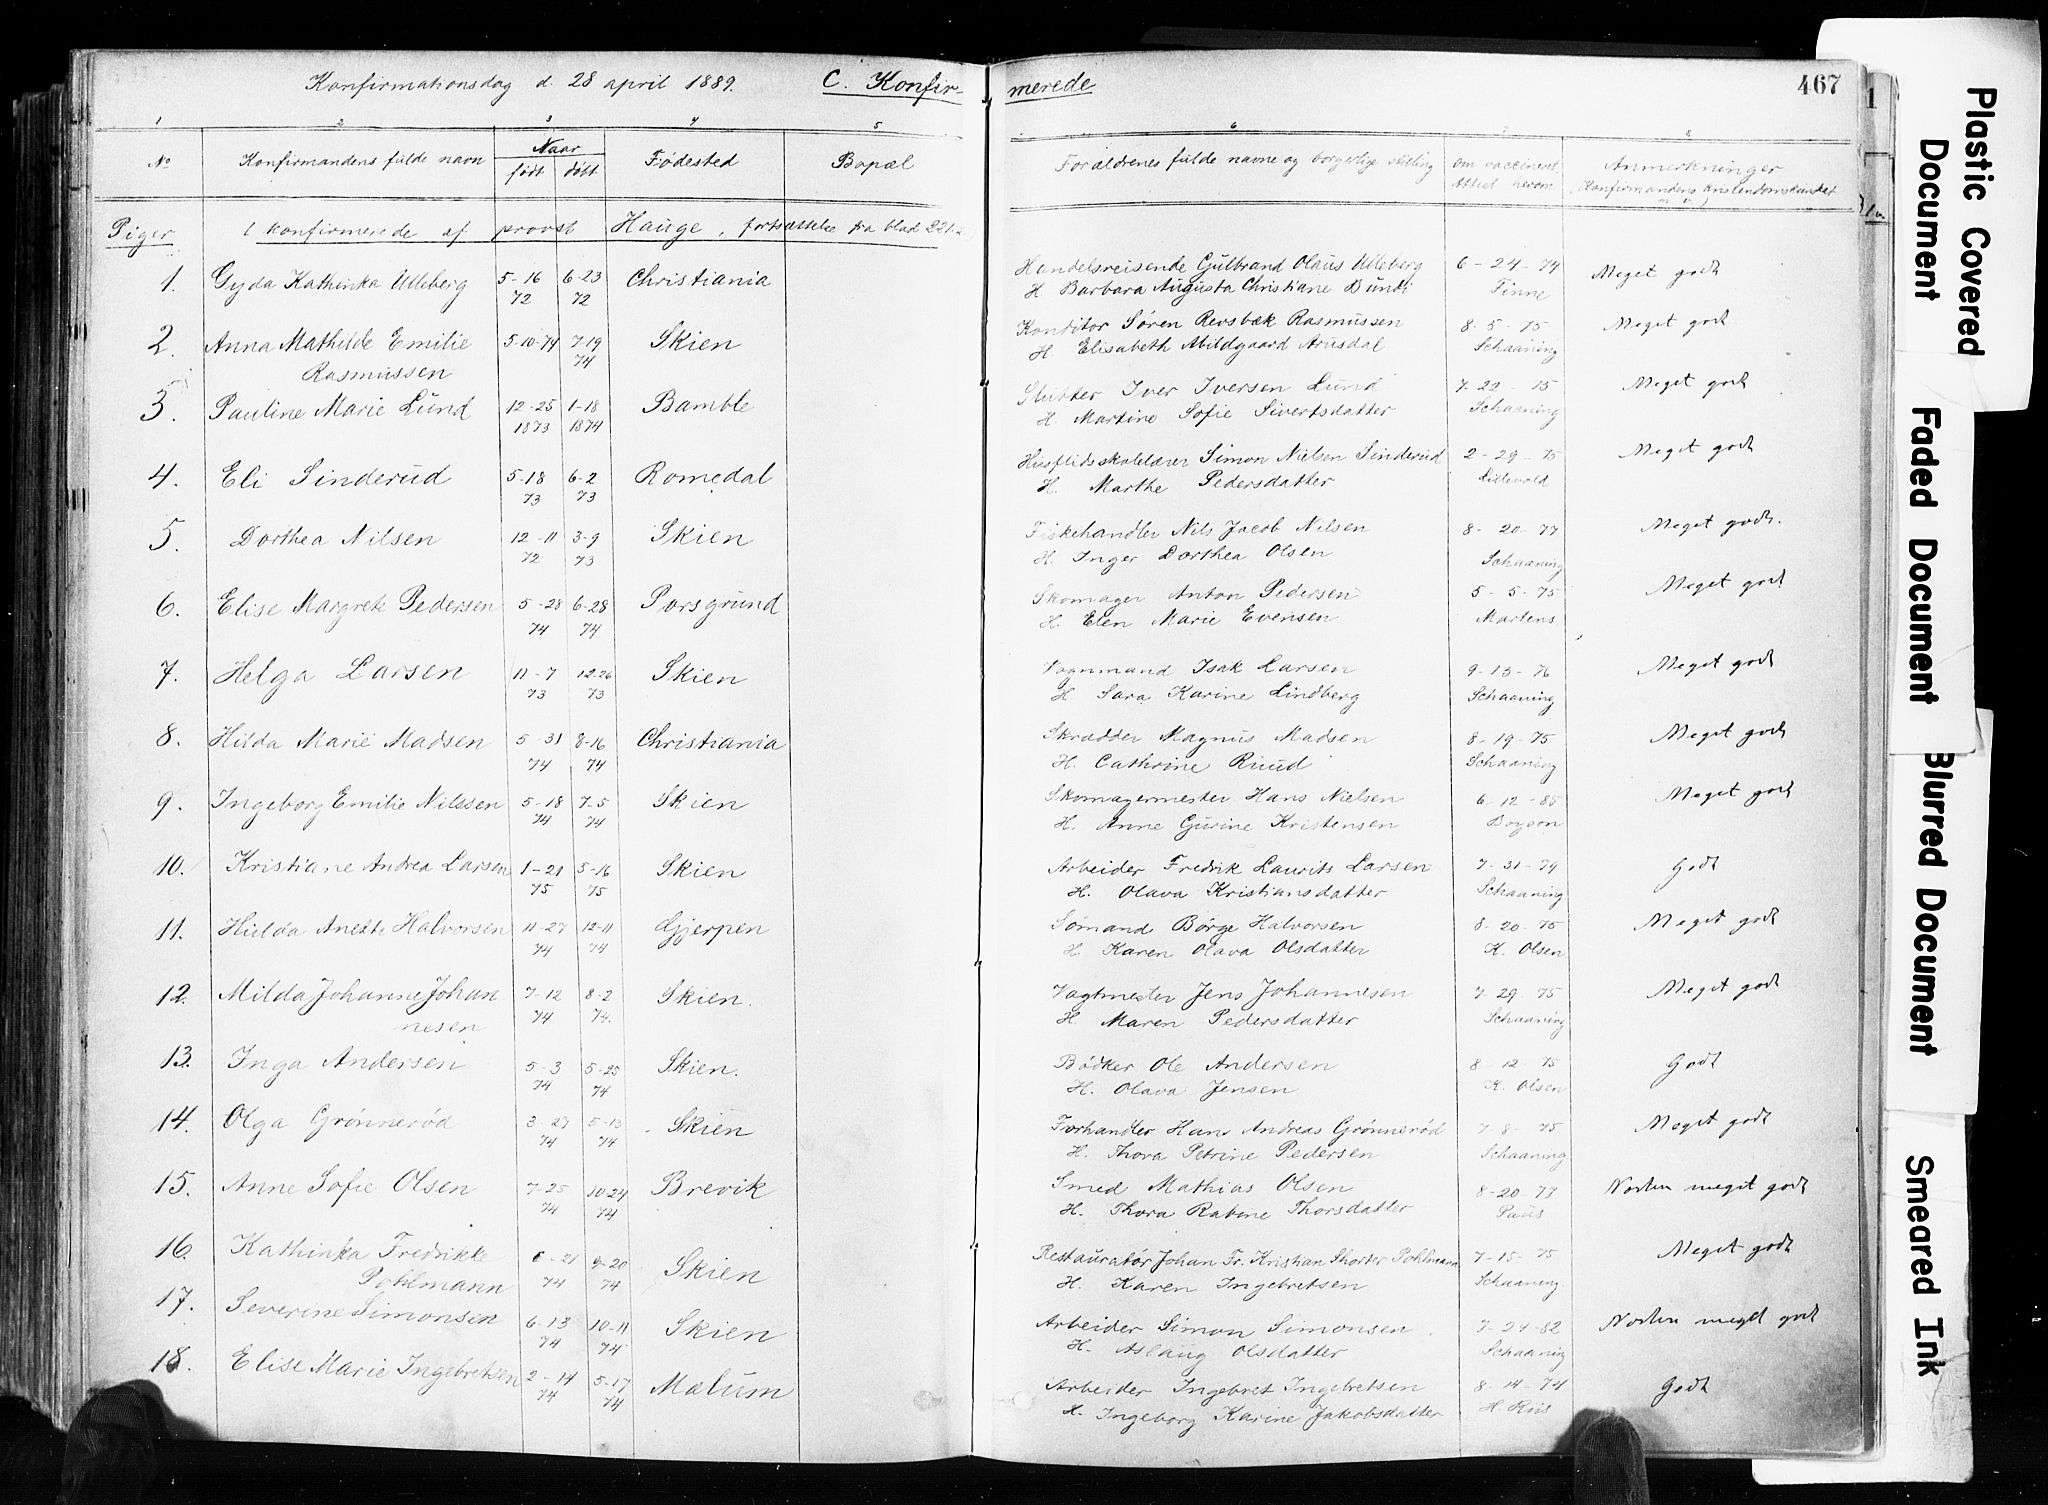 Konfirmationsdag d. 28 april 1889. C. Konfir-
merede 467
1 2 3 4 5
6 7 8
No Konfirmandens fulde navn Naar født døbt Fødested Bopæl
Forældrenes fulde navne og borgerlige stilling om vaccineret. Attest herom Anmerkninger (Konfirmandens kristendomskundskab
Piger (konfirmerede af provst Hauge, fortsættelse fra blad 221
1. Gyda Kathinka Ulleberg 5-16 72 6-23 72 Christiania
Handelsreisende Gulbrand Olaus Ulleberg 6-24-74 Meget godt
H. Barbara Augusta Christiane Bundi Finne
2. Anna Mathilde Emilie Rasmussen 5-10-74 7-19 74 Skien
Konditor Søren Revsbæk Rasmussen 8-5-75 Meget godt
H. Elisabeth Abildgaard Arusdal Schaaning
3. Pauline Marie Lund 12-25 1873 1-18 1874 Bamble
Slutter Iver Iversen Lund 7-22-75 Meget godt
H. Martine Sofie Sivertsdatter Schaaning
4. Eli Sinderud 5-18 73 6-2 73 Romedal
Husflidsskolelærer Simon Nielsen Sinderud 2-29-75 Meget godt
H. Marthe Pedersdatter Lillevold
5. Dorthea Nilsen 12-11 72 3-9 73 Skien
Fiskehandler Nils Jacob Nilsen 8-20-77 Meget godt.
H. Inger Dorthea Olsen Schaaning
6. Elise Margrete Pedersen 5-28 74 6-28 74 Porsgrund
Skomager Anton Pedersen 5-5-75 Meget godt
H. Elen Marie Evensen Martens
7. Helga Larsen 11-7 73 12-26 73 Skien
Vognmand Isak Larsen 9-13-76 Meget godt
H. Sara Karine Lindberg Schaaning
8. Hilda Marie Madsen 5-31 74 8-16 74 Christiania
Skrædder Magnus Madsen 8-19-75 Meget godt
H. Cathrine Ruud Schaaning
9. Ingeborg Emilie Nilssen 5-18 74 7-5 74 Skien
Skomagermester Hans Nielsen 6-12-85 Meget godt
H. Anne Gurine Kristensen Boyson
10. Kristiane Andrea Larsen 1-21 75 5-16 75 Skien
Arbeider Fredrik Laurits Larsen 7-31-79 Godt
H. Olava Kristiansdatter Schaaning
11. Hulda Anette Halvorsen 11-27 74 12-11 74 Gjerpen
Sømand Børge Halvorsen 8-20-75 Meget godt
H. Karen Olava Olsdatter K. Olsen
12. Milda Johanne Johan 7-12 74 8-2 74. Skien.
nesen
Vagtmester Jens Johannesen 7-29 75 Meget godt
H. Maren Pedersdatter Schaaning
13. Inga Andersen 5-3 74 5-25 74 Skien.
Bødker Ole Andersen 8-12 75 Godt
H. Olava Jensen K. Olsen
14. Olga Grønnerød 3-27 74 5-13 74 Skien
Forhandler Hans Andreas Grønnerød 7-8-75 Meget godt
H. Thora Petrine Pedersen Schaaning
15. Anne Sofie Olsen 7-25 74 10-24 74 Brevik
Smed Mathias Olsen 8-20-77 Næsten meget godt
H. Thora Rabine Thorsdatter Paus
16. Kathinka Fredrikke Pohlmann 6-21 74 9-20 74 Skien
Restauratør Johan Fr. Kristian Shorter Pohlmann 7-15-75 Meget godt
H. Karen Ingebretsen Schaaning
17. Severine Simonsen 6-13 74 10-11 74 Skien
Arbeider Simon Simonsen 7-24-82 Næsten meget godt
H. Aslaug Olsdatter Schaaning
18. Elise Marie Ingebretsen 2-14 74 5-17 74 Mælum
Arbeider Ingebret Ingebretsen 8-14-74 Godt
H. Ingeborg Karine Jakobsdatter H. Riis
Plastic Covered Document
Faded Document
Blurred Document
Smeared Ink